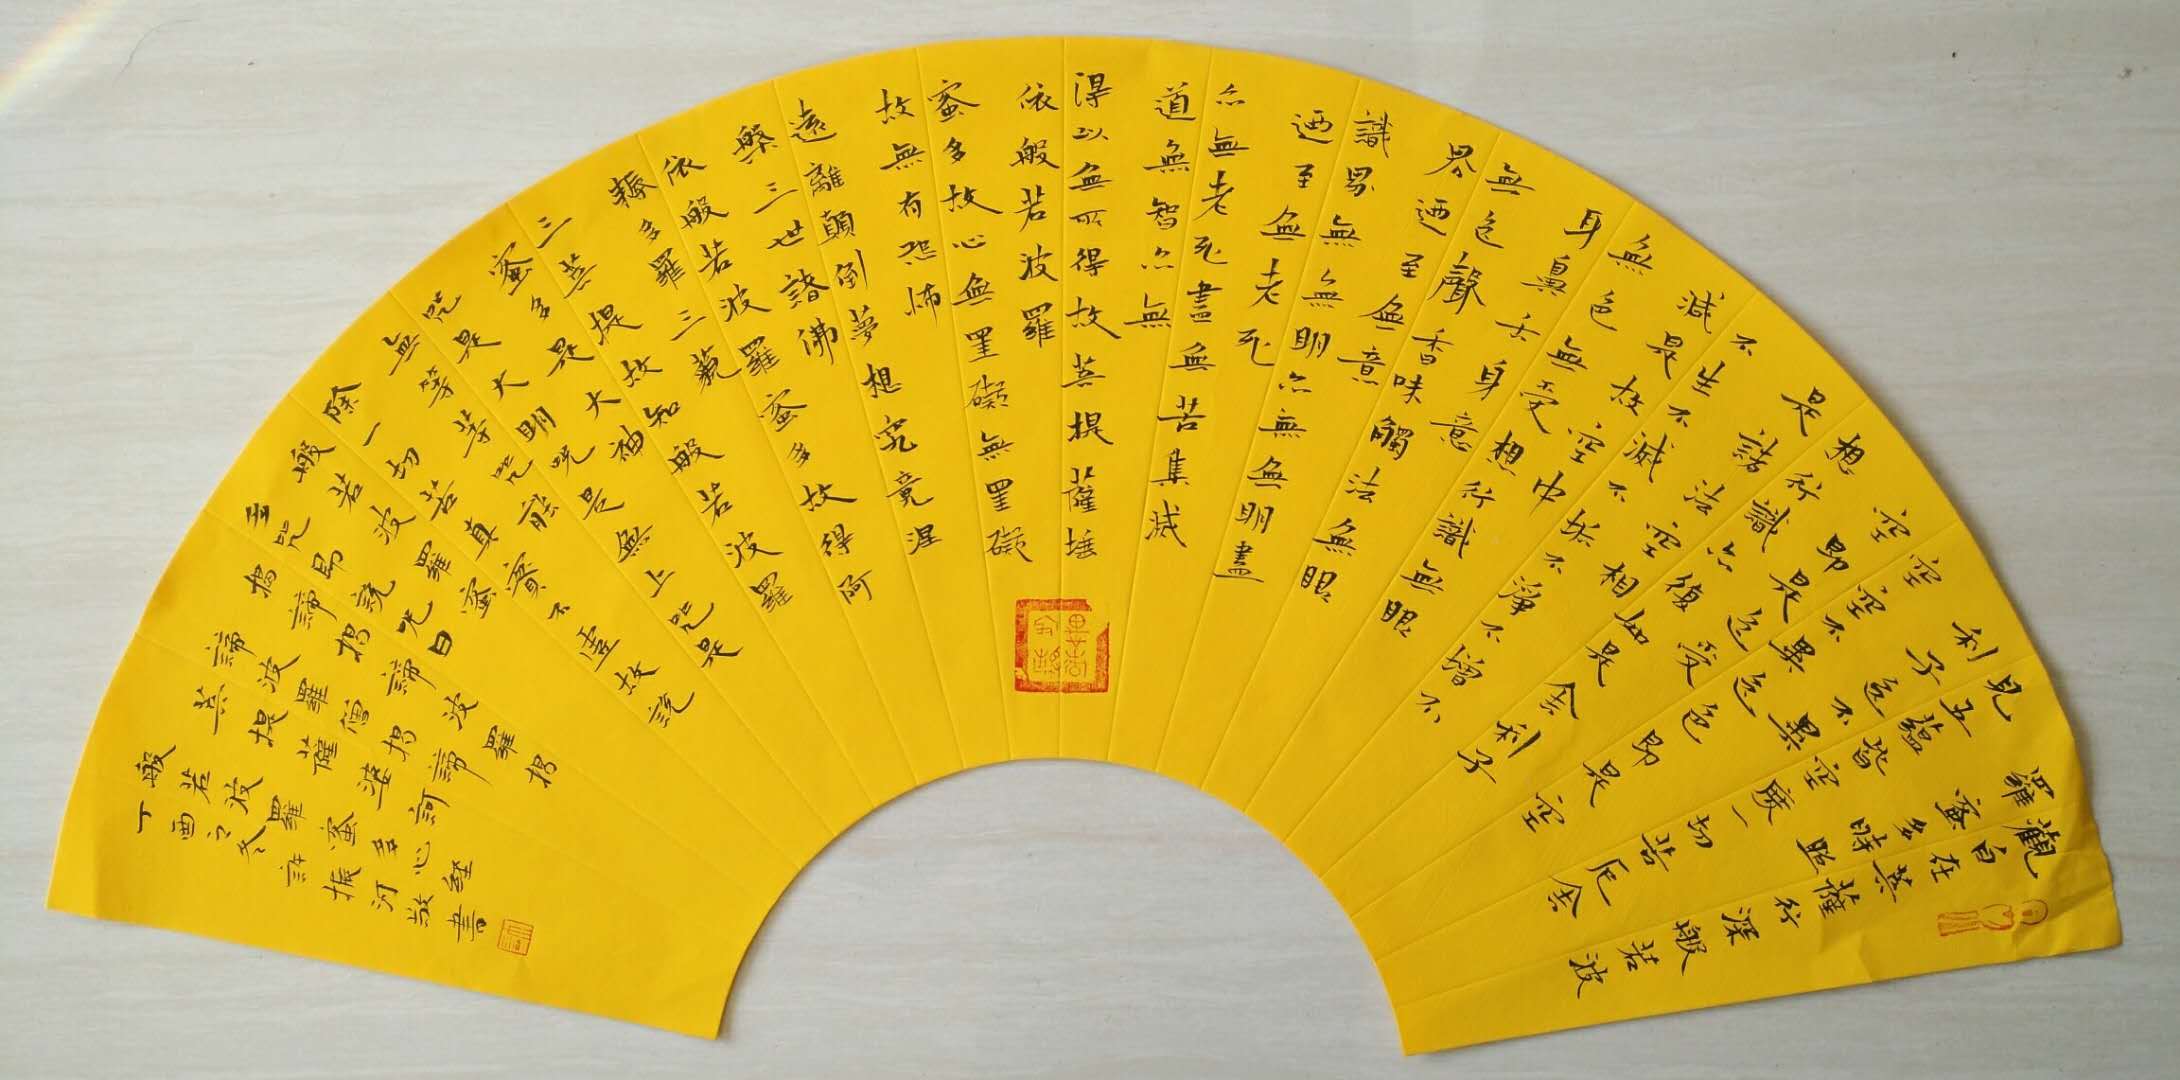 觀自在菩薩行深般若波
羅蜜多時照
見五蘊皆空度一切苦厄舍
利子色不異
空空不異色色即是空
空即是色受
想行識亦復如是舍利子
是諸法空相
不生不滅不垢不淨不增不
減是故空中
無色無受想行識無眼
耳鼻舌身意
無色聲香味觸法無眼
界迺至無意
識界無無明亦無無明盡
迺至無老死
亦無老死盡無苦集滅
道無智亦無
得以無所得故菩提薩埵
依般若波羅
蜜多故心無罣礙無罣礙
故無有恐怖
遠離顛倒夢想究竟涅
槃三世諸佛
依般若波羅蜜多故得阿
耨多羅三藐
三菩提故知般若波羅
蜜多是大神
咒是大明咒是無上咒是
無等等咒能
除一切苦真實不虛故說
般若波羅蜜
多咒即說咒曰
揭諦揭諦波羅揭
諦波羅僧揭諦
菩提薩婆訶
般若波羅蜜多心經
丁酉之冬許振河敬書